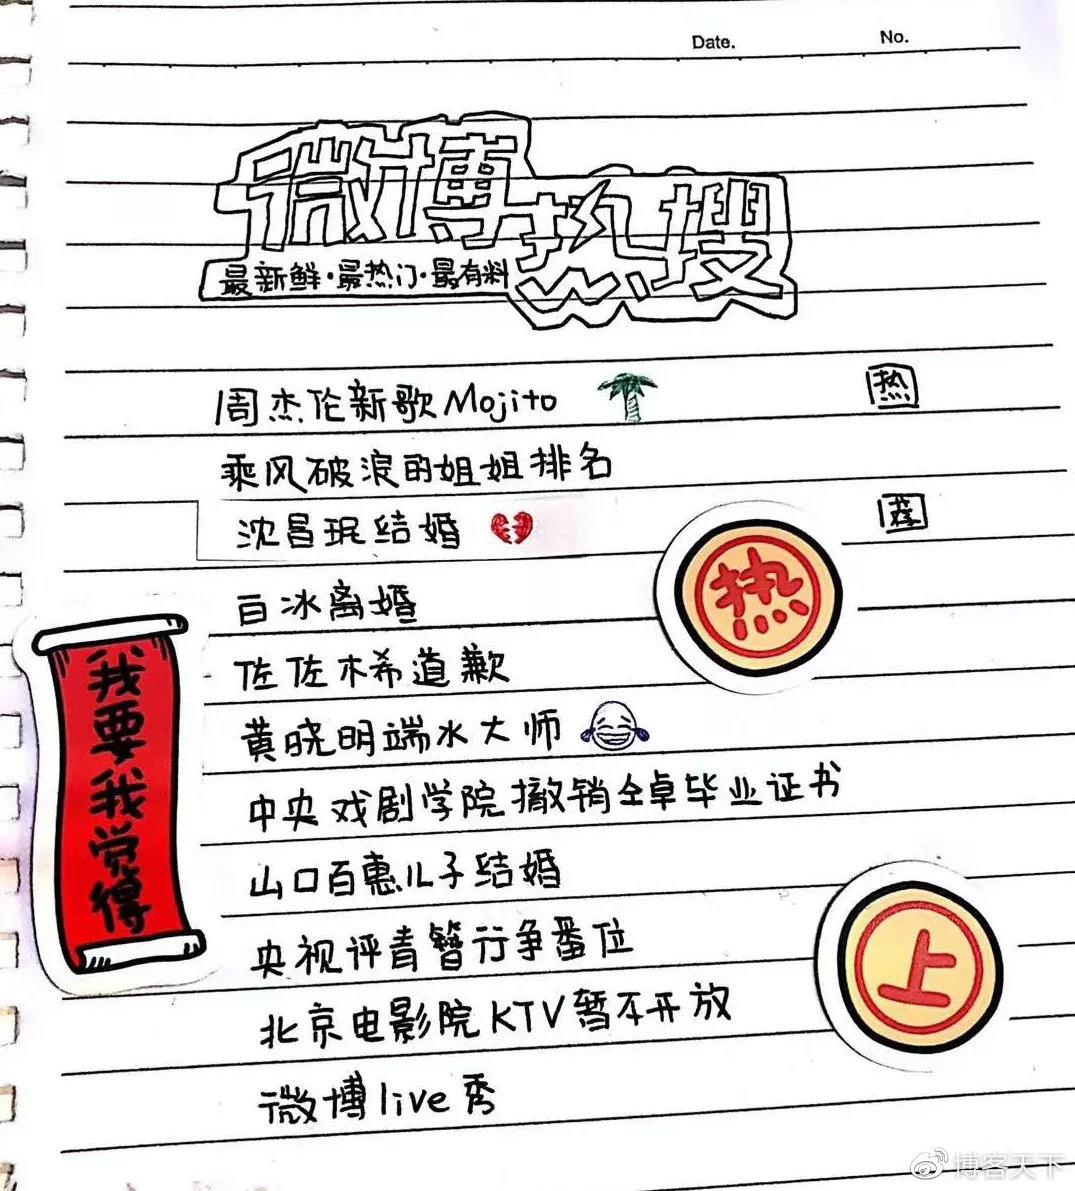 Date. No.
微博热搜
最新鲜·最热门·最有料
周杰伦新歌Mojito 热
乘风破浪的姐姐排名
沈昌珉结婚 荐
热
白冰离婚
佐佐木希道歉
黄晓明端水大师
中央戏剧学院撤销仝卓毕业证书
山口百惠儿子结婚
央视评青簪行争番位
北京电影院KTV暂不开放
微博live秀
我要我觉得
上
博客天下